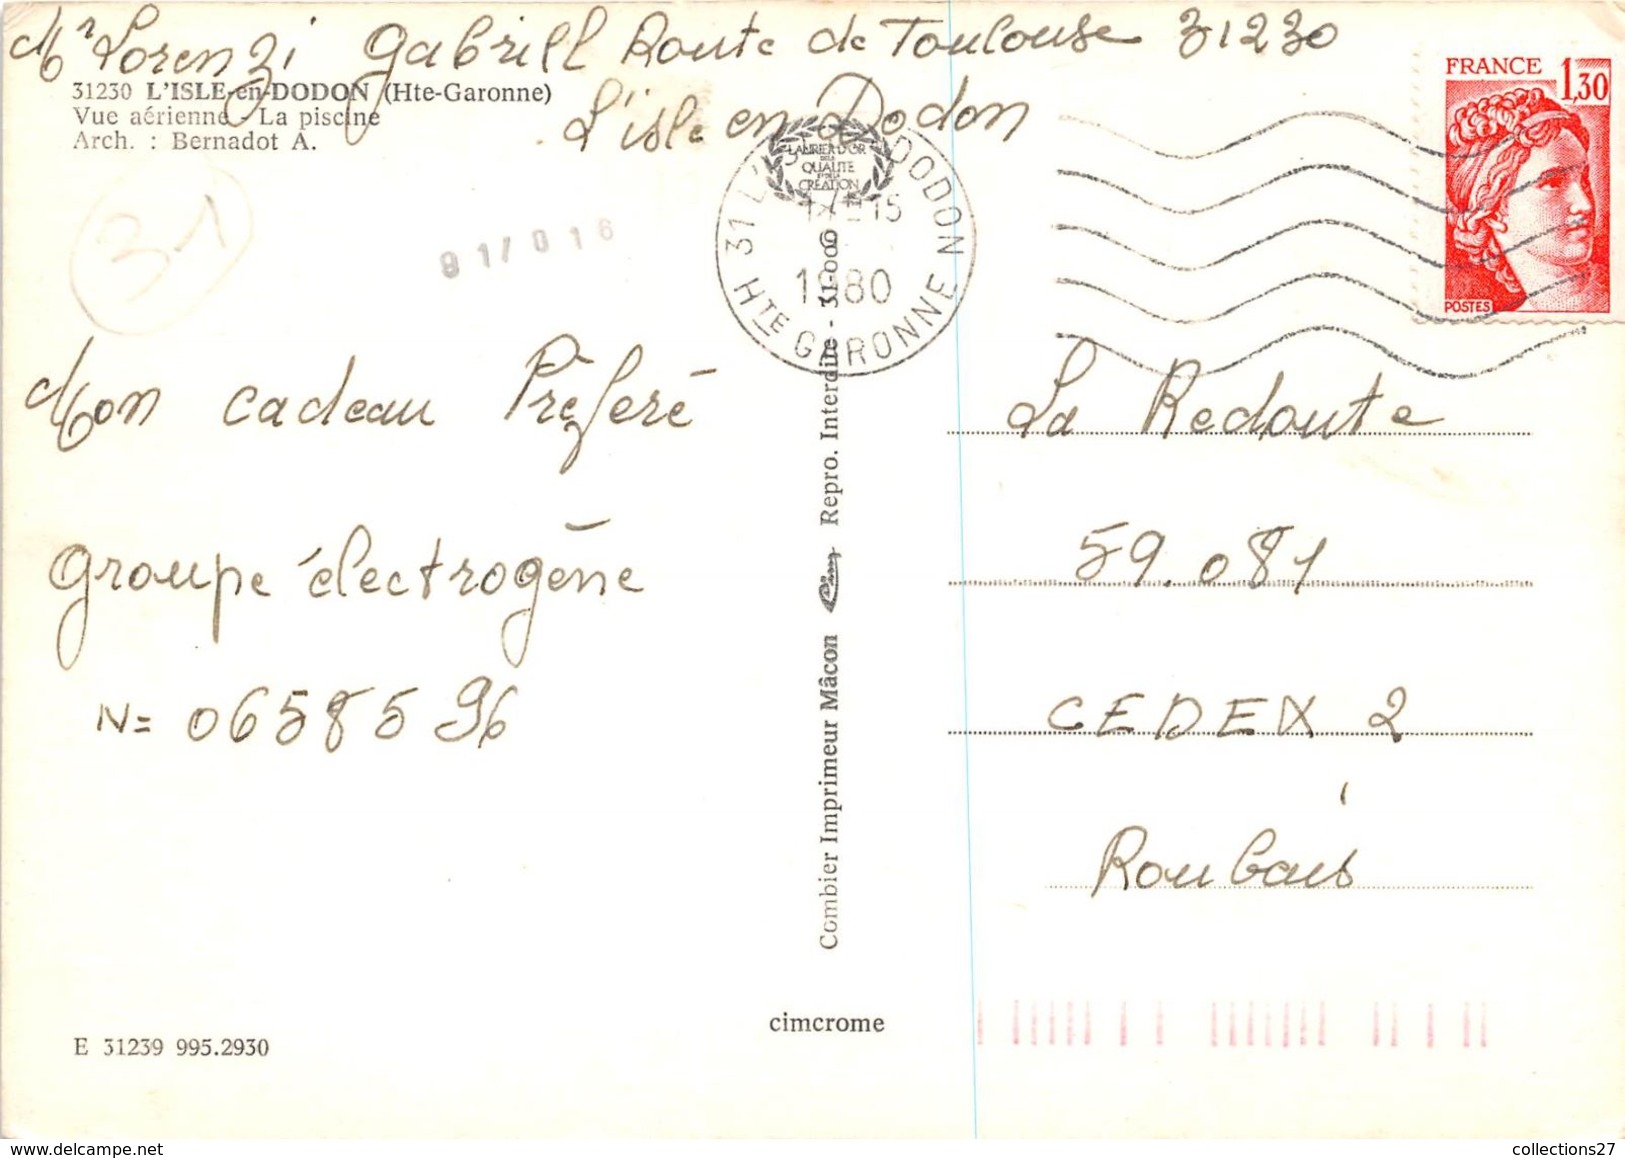 Mr Lorenzi gabriell Route de Toulouse 31230
L'isle en Dodon
31230 L'ISLE-en-DODON (Hte-Garonne)
Vue aérienne - La piscine
Arch. : Bernadot A.
31
81/016
LAURIER D'OR
DE LA
QUALITE
ET DE LA
CREATION
DODON
1980
HTE GARONNE
FRANCE 1,30
POSTES
Mon cadeau Préféré
groupe électrogène
N= 0658596
Combier Imprimeur Mâcon Cim Repro. Interdite - 31-009
La Redoute
59.081
CEDEX 2
Roubais
cimcrome
E 31239 995.2930
collections27